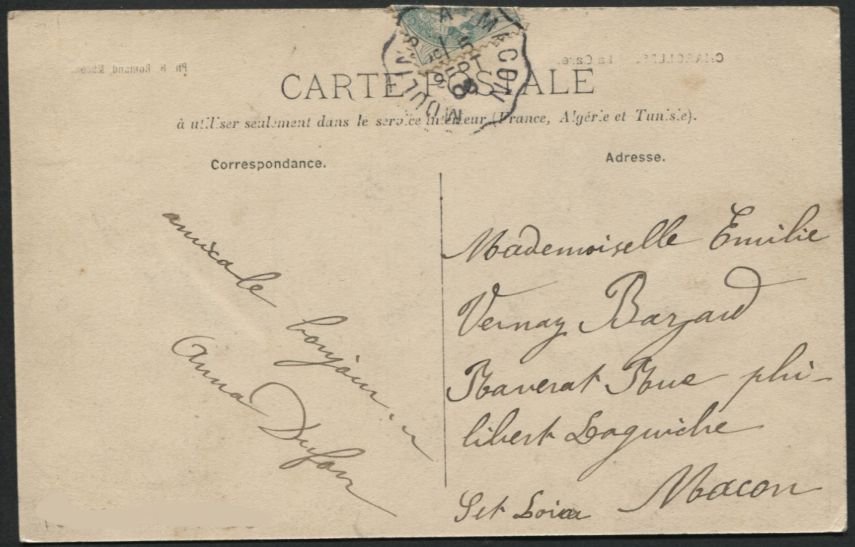 MACON
MOULINS
CARTE POSTALE
à utiliser seulement dans le service intérieur (France, Algérie et Tunisie).
Correspondance.
Adresse.
amicale bonjour
Anna
Mademoiselle Emilie
Vernay Bazard
Raverat Rue phi-
libert Laguiche
Macon
Set Loire